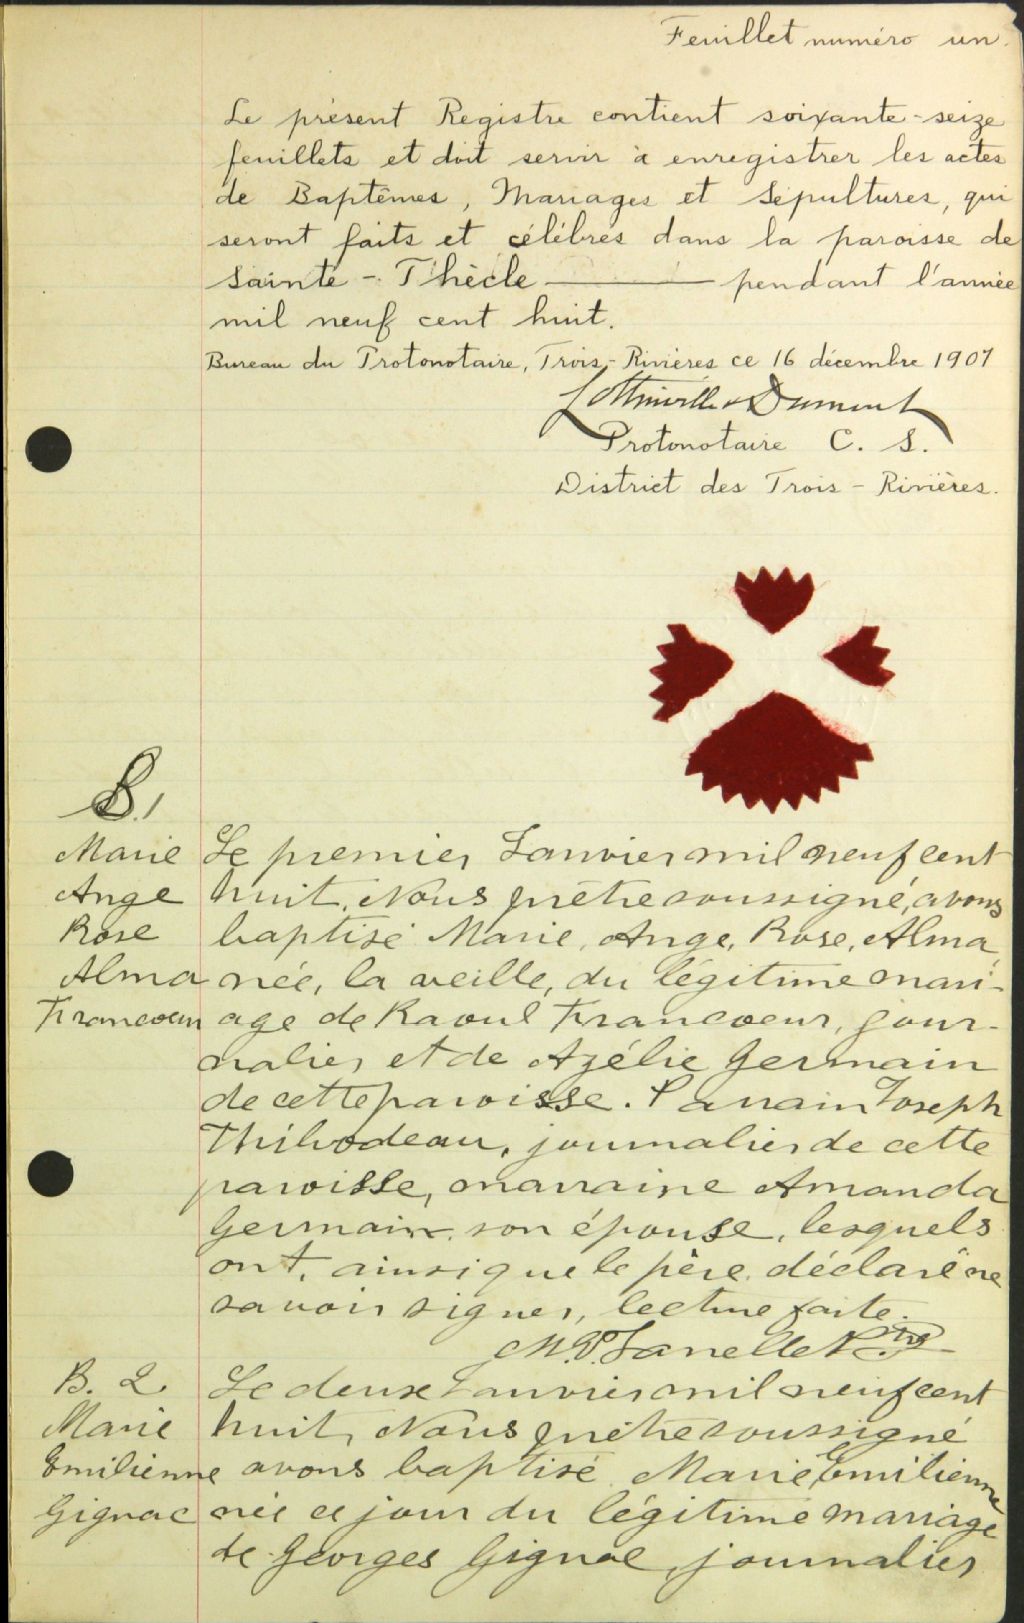 Feuillet numéro un.
Le présent Registre contient soixante-seize
feuillets et doit servir à enregistrer les actes
de Baptêmes, Mariages et Sépultures, qui
seront faits et célébrés dans la paroisse de
Sainte-Thècle ——— pendant l'année
mil neuf cent huit.
Bureau du Protonotaire, Trois-Rivières ce 16 décembre 1907
Lottinville & Dumont
Protonotaire C. S.
District des Trois-Rivières.
B. 1
Marie
Ange
Rose
Alma
Francoeur
Le premier Janvier mil neuf cent
huit, Nous prêtre soussigné, avons
baptisé Marie, Ange, Rose, Alma,
née, la veille, du légitime mari-
age de Raoul Francoeur, jour-
nalier et de Azélie Germain
de cette paroisse. Parrain Joseph
Thibodeau, journalier de cette
paroisse, marraine Amanda
Germain son épouse, lesquels
ont, ainsi que le père, déclaré ne
savoir signer, lecture faite.
Ptre
B. 2.
Marie
Emilienne
Gignac
Le deux Janvier mil neuf cent
huit, Nous prêtre soussigné
avons baptisé Marie Emilienne
née ce jour du légitime mariage
de Georges Gignac, journalier